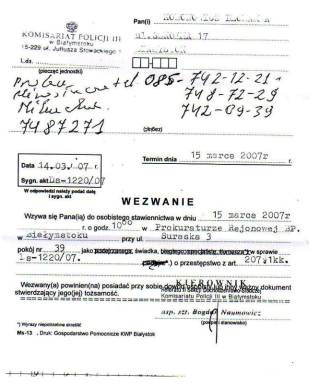 Pan(i)
KOMISARIAT POLICJI III
w Białymstoku
15-229 ul. Juliusza Słowackiego
17
L.dz.
(pieczęć jednostki)
tel. 085-742-12-21
748-72-29
742-09-39
7487271
(adres)
Data 14.03.07 r.
Sygn. akt Ds-1220/07
W odpowiedzi należy podać datę
i sygn. akt
Termin dnia 15 marca 2007r r.
WEZWANIE
Wzywa się Pana(ią) do osobistego stawiennictwa w dniu 15 marca 2007r
r. o godz. 10⁰⁰ w Prokuraturze Rejonowej BP.
w Białymstoku przy ul. Suraska 3
pokój nr 39 jako podejrzanego, świadka, biegłego, specjalisty, tłumacza*) w sprawie
Ds-1220/07. *) o przestępstwo z art. 207§1kk.
Wezwany(a) powinien(na) posiadać przy sobie dowód osobisty lub inny ważny dokument
stwierdzający jego(jej) tożsamość.
KIEROWNIK
Komisariatu Policji III w Białymstoku
asp. szt. Bogdan Naumowicz
(podpis i stanowisko)
*) Wyrazy niepotrzebne skreślić
Ms-13 . Druk: Gospodarstwo Pomocnicze KWP Białystok